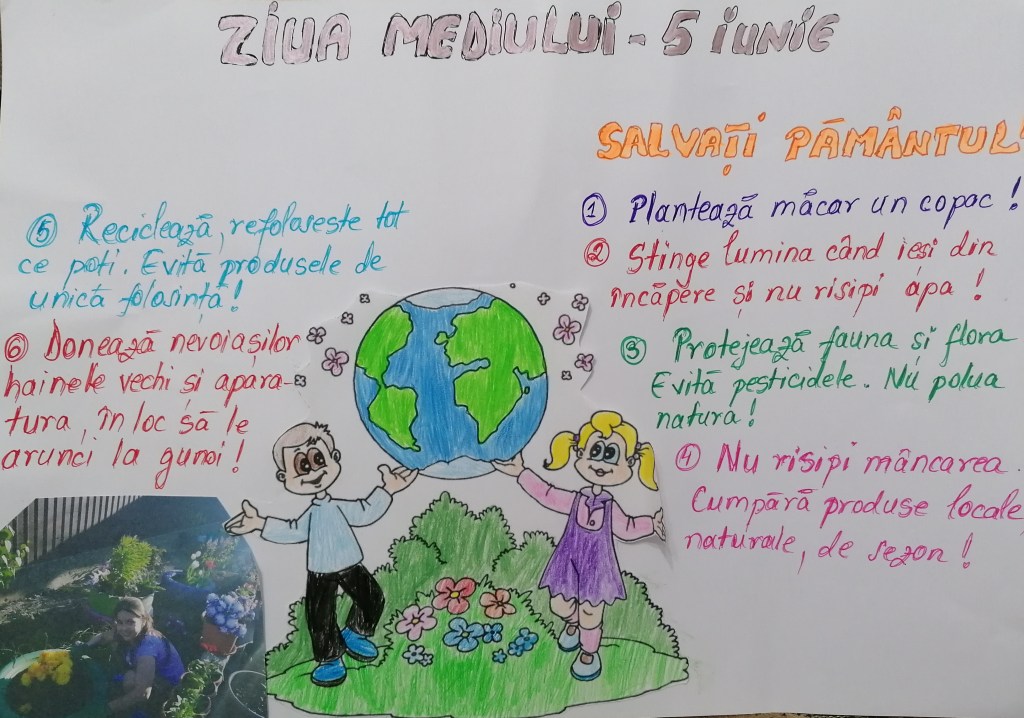 ZIUA MEDIULUI - 5 IUNIE
SALVAȚI PĂMÂNTUL!
① Plantează măcar un copac!
② Stinge lumina când ieși din
încăpere și nu risipi apa!
③ Protejează fauna și flora
Evită pesticidele. Nu polua
natura!
④ Nu risipi mâncarea.
Cumpără produse locale,
naturale, de sezon!
⑤ Reciclează, refolosește tot
ce poți. Evită produsele de
unică folosință!
⑥ Donează nevoiașilor
hainele vechi și apara-
tura, în loc să le
arunci la gunoi!